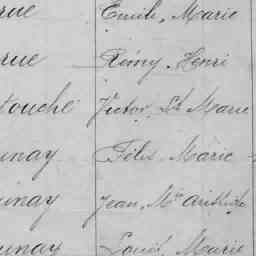 rue Emile, Marie
rue Rémy, Henri
touche Victor, St Marie
unay Félix, Marie
unay Jean, Mie Aristide
unay Louis, Marie